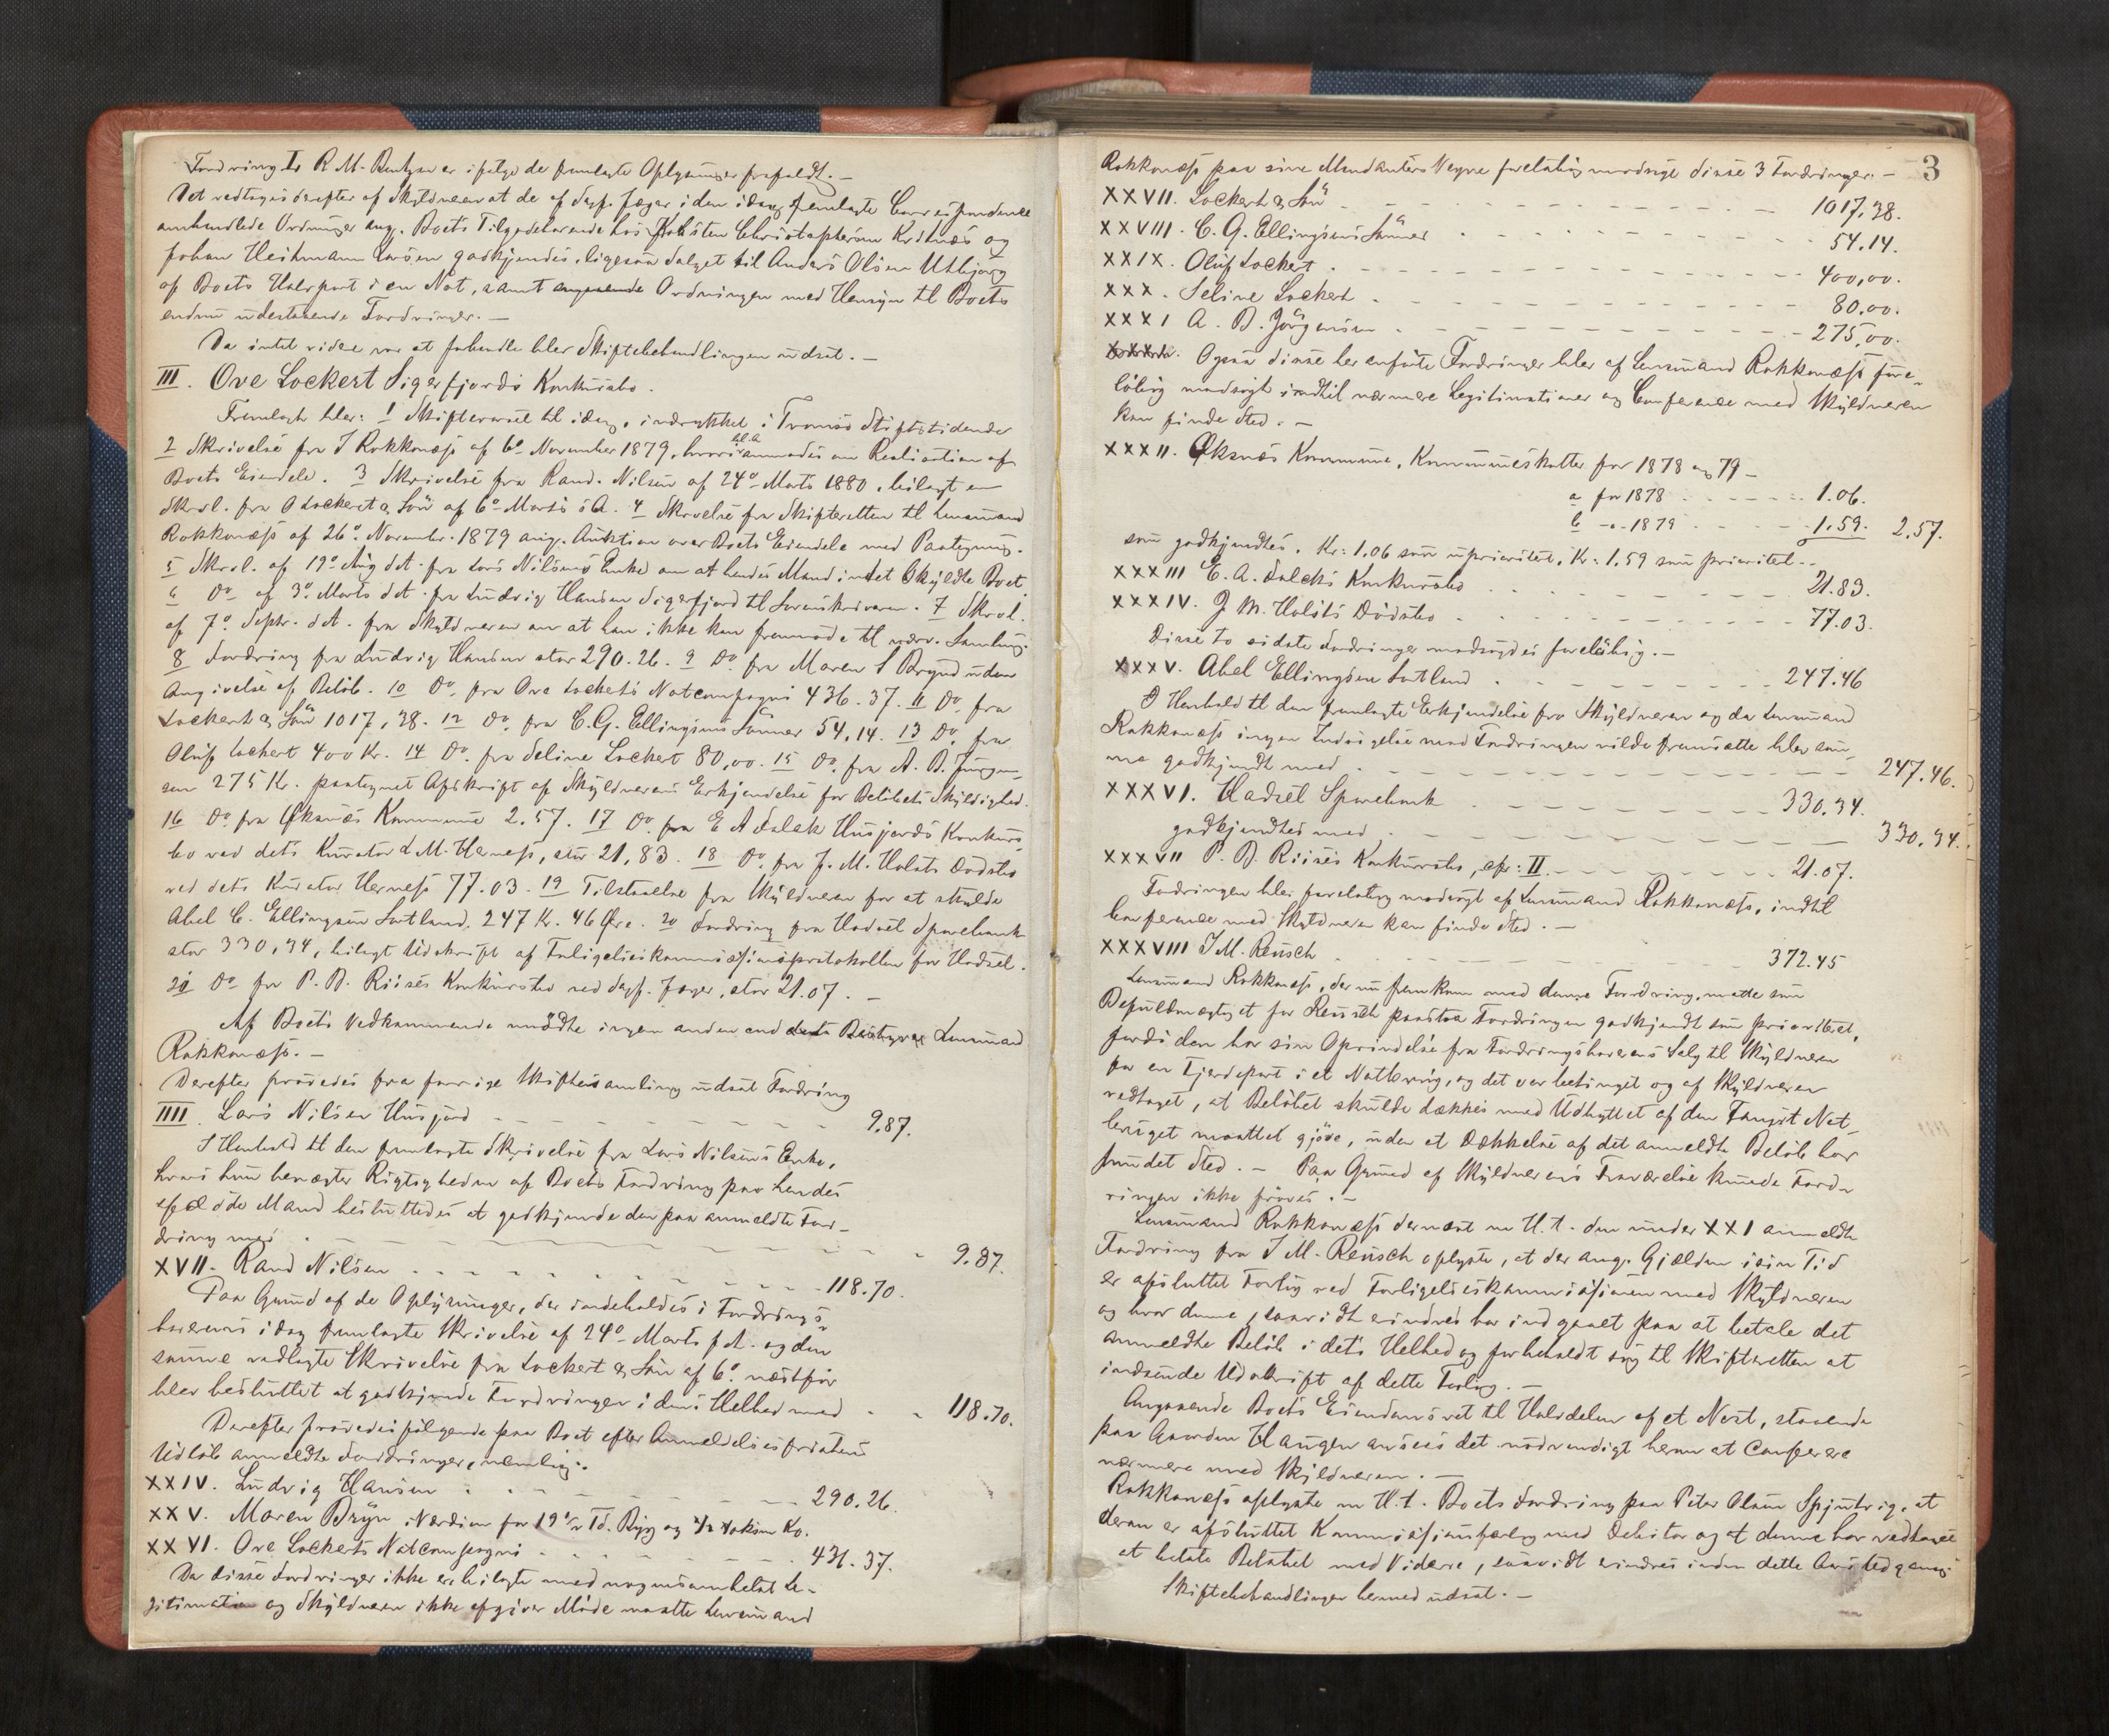 Fordring I, R. M. Bentzen er ifølge de fremlagte Oplysninger frafaldt. –
Det vedtoges derefter af Skyldneren at de af Sagf. Jæger i den idag fremlagte Correspondence
omhandlede Ordninger ang. Boets Tilgodehavende hos Kristen Christophersen og
Johan Heitmann Larsen godkjendes, ligesaa Salget til Anders Olsen Utbjørg
af Boets Halvpart i en Not, samt angaaende Ordningen med Hensyn til Boets
endnu udestaaende Fordringer. –
Da intet videre var at forhandle blev Skiftebehandlingen udsat. –
III. Ove Lockert Sigerfjords Konkursbo.
Fremlagt blev: 1 Skiftevarsel til idag, indrykket i Tromsø Stiftstidende
2 Skrivelse fra J Rokkonæss af 6te November 1879, hvori bl.a. anmodes om Realisation af
Boets Eiendele. 3 Skrivelse fra Rand. Nilsen af 24de Marts 1880, bilagt en
Skrvl. fra O Lockert & Søn af 6te Marts s A. 4 Skrivelse fra Skifteretten til Lensmand
Rokkonæss af 26de November 1879 ang. Auktion over Boets Eiendele med Paategning.
5 Skrvl. af 19de Aug d.A. fra Lars Nilsens Enke om at hendes Mand intet skyldte Boet.
6 Do af 3de Marts d.A. fra Ludvig Hansen Sigerfjord til Sorenskriveren. 7 Skrvl.
af 7de Septr. d.A. fra Skyldneren om at han ikke kan fremmøde til nærv. Samling.
8 Fordring fra Ludvig Hansen stor 290.26. 9 Do fra Maren S Bryn uden
Angivelse af Beløb. 10 Do fra Ove Lockerts Notcompagni 436.37. 11 Do fra
Lockert & Søn 1017,38. 12 Do fra C. G. Ellingsens Sønner 54,14. 13 Do fra
Oluf Lockert 400 Kr. 14 Do fra Seline Lockert 80,00. 15 Do fra A. B. Jørgen-
sen 275 Kr. paategnet Afskrift af Skyldnerens Erkjendelse for Beløbets Skyldighed.
16 Do fra Øksnes Kommune 2.57. 17 Do fra E A Falck Husjords Konkurs-
bo ved dets Kurator L M. Harness, stor 21,83. 18 Do fra J. M. Holsts Dødsbo
ved dets Kurator Harness 77.03. 19 Tilstaaelse fra Skyldneren for at skylde
Abel C. Ellingsen Sortland, 247 Kr. 46 Øre. 20 Fordring fra Hadsel Sparebank
stor 330,34, bilagt Udskrift af Forligelseskommissionsprotokollen for Hadsel.
21 Do fra P. D. Riises Konkursbo ved Sagf. Jæger, stor 21.07. –
Af Boets Vedkommende mødte ingen anden end dets Bestyrer Lensmand
Rokkonæss. –
Derefter prøvedes fra forrige Skiftesamling udsat Fordring
IIII. Lars Nilsen Husjord - - - - - 9.87.
I Henhold til den fremlagte Skrivelse fra Lars Nilsens Enke,
hvori hun benægter Rigtigheden af Boets Fordring paa hendes
afdøde Mand besluttedes at godkjende den paa anmeldte For-
dring med - - - - - 9.87.
XVII. Rand Nilsen - - - - - 118.70.
Paa Grund af de Oplysninger, der indeholdes i Fordrings-
haverens idag fremlagte Skrivelse af 24de Marts d.A. og den
samme vedlagte Skrivelse fra Lockert & Søn af 6te næstfør
blev besluttet at godkjende Fordringen i dens Helhed med - - 118.70.
Derefter prøvedes følgende paa Boet efter Anmeldelsesfristens
Udløb anmeldte Fordringer, nemlig:
XXIV. Ludvig Hansen - - - - - 290.26.
XXV. Maren Bryn, Værdien for 19 1/2 Td. Byg og 1/2 voksen Ko.
XXVI. Ove Lockerts Notcompagni - - - - - 436.37.
Da disse Fordringer ikke er bilagte med nogensomhelst Le-
gitimation og Skyldneren ikke afgiver Møde maatte Lensmand
3
Rokkonæss paa sine Mandanters Vegne foreløbig modsige disse 3 Fordringer. –
XXVII. Lockert & Søn - - - - - 1017,38.
XXVIII. C. G. Ellingsens Sønner - - - - - 54.14.
XXIX. Oluf Lockert - - - - - 400,00.
XXX. Seline Lockert - - - - - 80.00.
XXXI A. B. Jørgensen - - - - - 275,00.
Ogsaa disse her anførte Fordringer blev af Lensmand Rokkonæss fore-
løbig modsagt indtil nærmere Legitimationer og Conference med Skyldneren
kan finde Sted. –
XXXII. Øksnes Kommune, Kommuneskatter for 1878 og 79 –
a for 1878 - - - - - 1.06.
b -"- 1879 - - - - - 1.59. 2,57.
som godkjendtes, Kr: 1,06 som uprioritet, Kr: 1,59 som prioritet. -
XXXIII E. A. Falcks Konkursbo - - - - - 21.83.
XXXIV. J M. Holsts Dødsbo - - - - - 77.03.
Disse to sidste Fordringer modsagdes foreløbig. –
XXXV. Abel Ellingsen Sortland - - - - - 247.46
I Henhold til den fremlagte Erkjendelse fra Skyldneren og da Lensmand
Rokkonæss ingen Indsigelse mod Fordringen vilde fremsætte blev sam-
me godkjendt med - - - - - 247.46.
XXXVI. Hadsel Sparebank - - - - - 330,34.
godkjendtes med - - - - - 330,34.
XXXVII P. D. Riises Konkursbo, cfr: II. - - - - - 21.07.
Fordringen blev foreløbig modsagt af Lensmand Rokkonæss, indtil
Conference med Skyldneren kan finde Sted. –
XXXVIII J M. Reusch - - - - - 372.45
Lensmand Rokkonæss, der nu fremkom med denne Fordring, maatte som
Befuldmægtiget for Reusch paastaa Fordringen godkjendt som prioriteret,
fordi den har sin Oprindelse fra Fordringshaverens Salg til Skyldneren
for en Fjerdepart i et Notbrug, og det var betinget og af Skyldneren
vedtaget, at Beløbet skulde dækkes med Udbyttet af den Fangst Not-
bruget maatte gjøre, uden at Dækkelse af det anmeldte Beløb har
fundet Sted. – Paa Grund af Skyldnerens Fraværelse kunde Ford-
ringen ikke prøves. –
Lensmand Rokkonæss dernæst m. H. t. den under XXI anmeldte
Fordring fra J M. Reusch oplyste, at der ang. Gjælden i sin Tid
er afsluttet Forlig ved Forligelseskommissionen med Skyldneren
og hvor denne, saavidt erindres har indgaaet paa at betale det
anmeldte Beløb i dets Helhed og forbeholdt sig til Skifteretten at
indsende Udskrift af dette Forlig. –
Angaaende Boets Eiendomsret til Halvdelen af et Nøst, staaende
paa Gaarden Haugen ansees det nødvendigt herom at Conferere
nærmere med Skyldneren. –
Rokkonæss oplyste m H. t. Boets Fordring paa Peter Olsen, at
derom er afsluttet Kommissionsforlig med Debitor og at denne har vedtaget
at betale Beløbet med Videre, saavidt erindres inden dette Aars Udgang.
Skiftebehandlingen hermed udsat. –